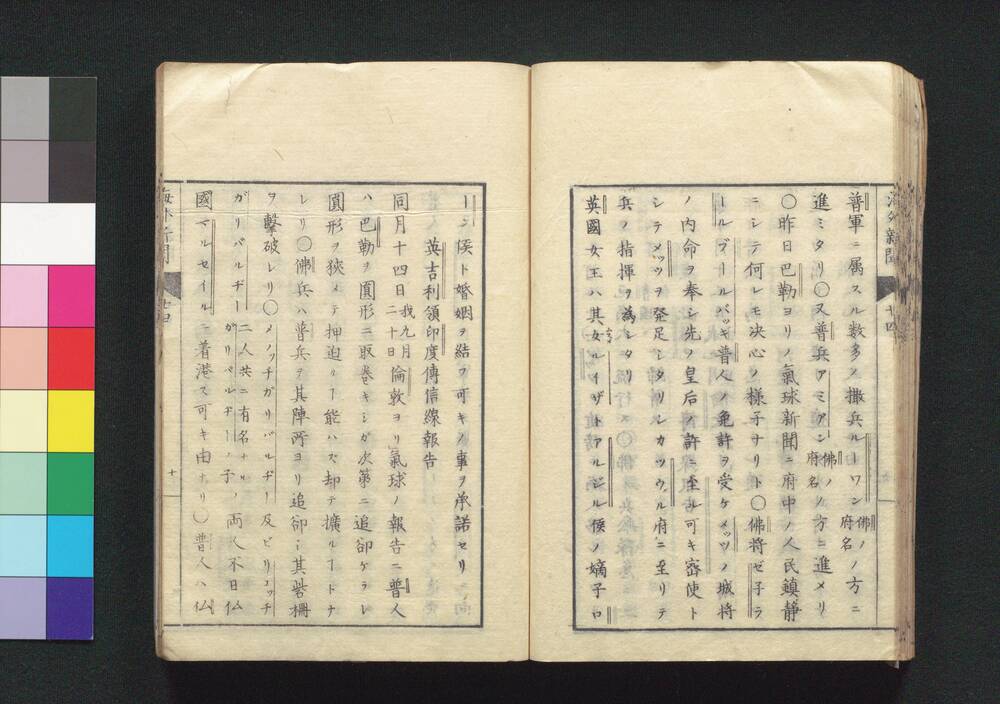 普軍ニ属スル數多ノ撒兵ルーワン佛ノ府名ノ方ニ
進ミタリ〇又普兵アミアン佛ノ府名ノ方ニ進メリ
〇昨日巴勒ヨリノ氣球新聞ニ府中ノ人民鎮静
ニシテ何レモ决心ノ様子ナリト〇佛將ゼ子ラ
ールブールバッキ普人ノ免許ヲ受ケメッツノ城將
ノ内命ヲ奉シ先ノ皇后ノ許ニ至ル可キ密使ト
シテメッツヲ発足シタリシカッウル府ニ至リテ
兵ノ指揮ヲ為シタリ
英國女王ハ其女ルイザトアルジル侯ノ嫡子ロ
ーン侯ト婚姻ヲ結フ可キノ事ヲ承諾セリ
英吉利領印度傳信線報告
同月十四日我九月二十日倫敦ヨリ氣球ノ報告ニ普人
ハ巴勒ヲ圓形ニ取巻キシガ次第ニ追卻ケラレ
圓形ヲ狹メテ押迫ルー能ハス却テ擴ルートナ
レリ〇佛兵ハ普兵ヲ其陣所ヨリ追卻シ其砦柵
ヲ擊破レリ〇メノッチガリバルヂー及ビリッチ
ガリバルヂー二人共ニ有名ナルガリバルヂーノ子ノ両人不日仏
國マルセイルニ着港ス可キ由ナリ〇普人ハ仏
海外新聞
廿四
十